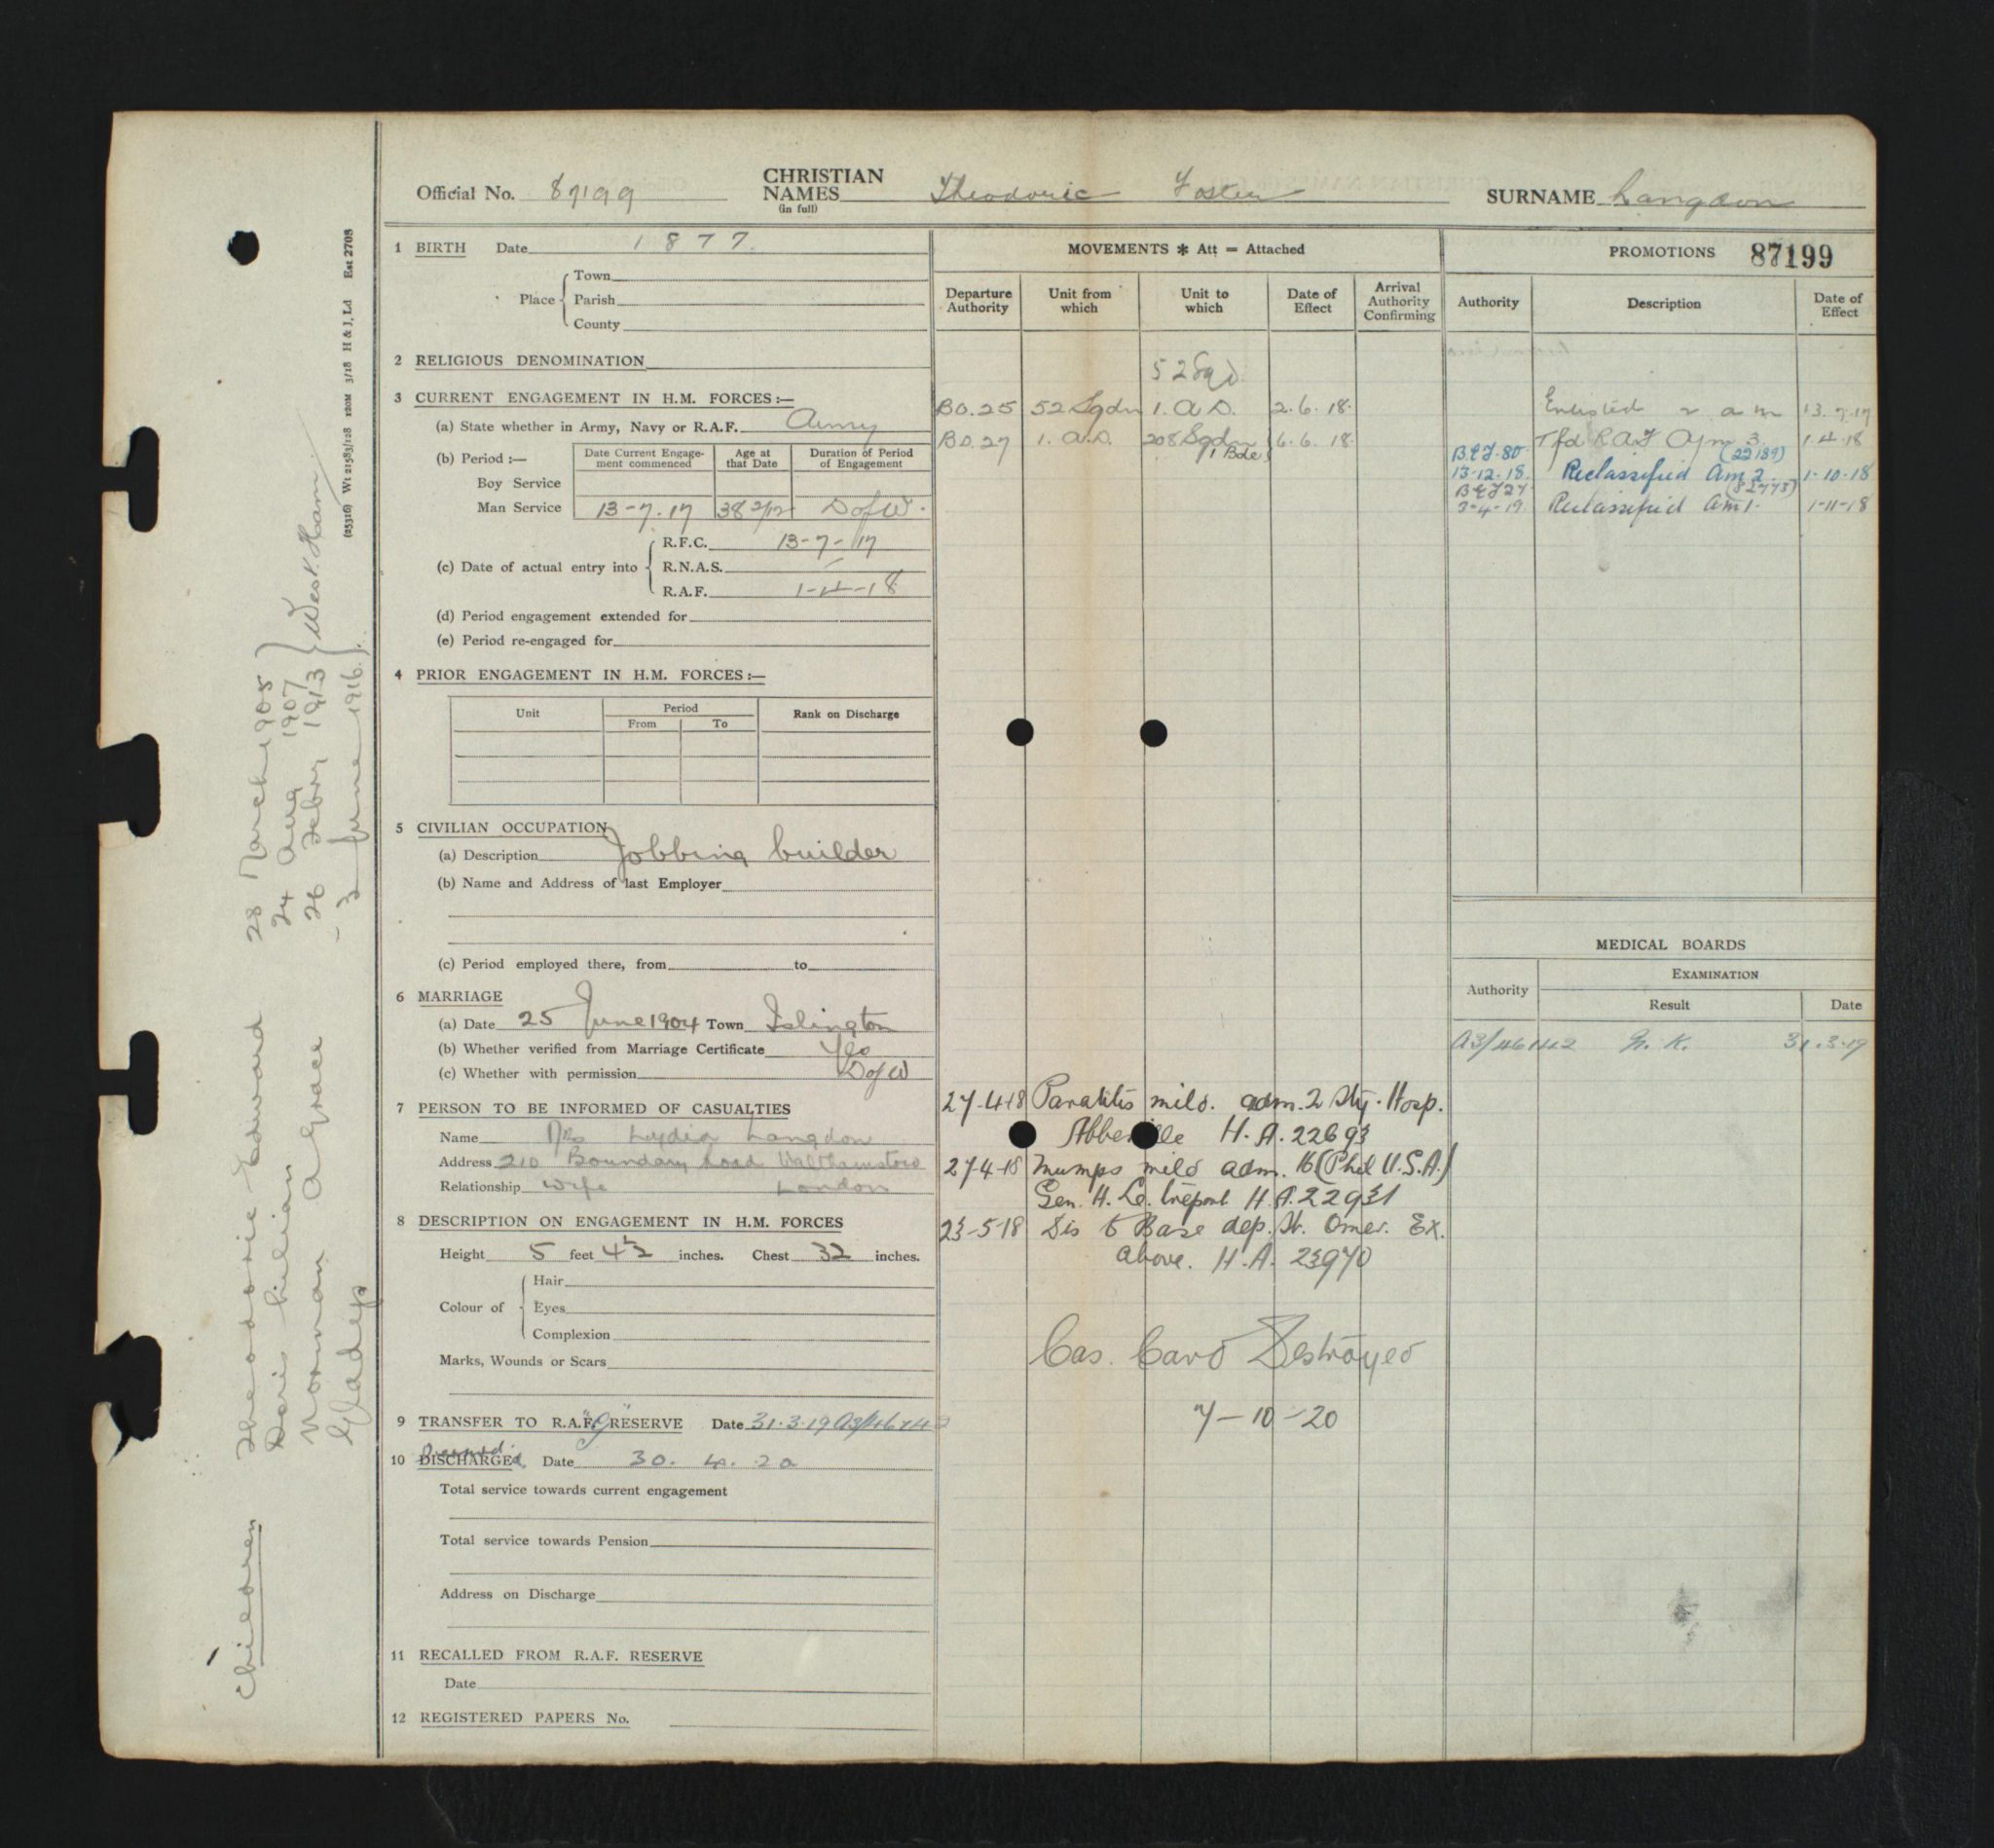 Official No. 87199 CHRISTIAN NAMES (in full) Theodoric Foster SURNAME Langdon
1 BIRTH Date 1877.
Place Town
Parish
County
2 RELIGIOUS DENOMINATION
3 CURRENT ENGAGEMENT IN H.M. FORCES :—
(a) State whether in Army, Navy or R.A.F. Army
(b) Period :— Date Current Engagement commenced Age at that Date Duration of Period of Engagement
Boy Service
Man Service 13-7-17 38 2/12 D of W.
(c) Date of actual entry into R.F.C. 13-7-17
R.N.A.S.
R.A.F. 1-4-18
(d) Period engagement extended for
(e) Period re-engaged for
4 PRIOR ENGAGEMENT IN H.M. FORCES :—
Unit Period Rank on Discharge
From To
5 CIVILIAN OCCUPATION
(a) Description Jobbing builder
(b) Name and Address of last Employer
(c) Period employed there, from to
6 MARRIAGE
(a) Date 25 June 1904 Town Islington
(b) Whether verified from Marriage Certificate Yes
(c) Whether with permission D of W
7 PERSON TO BE INFORMED OF CASUALTIES
Name Mrs Lydia Langdon
Address 210 Boundary Road Walthamstow
Relationship Wife London
8 DESCRIPTION ON ENGAGEMENT IN H.M. FORCES
Height 5 feet 4½ inches. Chest 32 inches.
Colour of Hair
Eyes
Complexion
Marks, Wounds or Scars
9 TRANSFER TO R.A.F. "G" RESERVE Date 31.3.19 A3/46742
10 DISCHARGEd. Date 30. 4. 20
Total service towards current engagement
Total service towards Pension
Address on Discharge
11 RECALLED FROM R.A.F. RESERVE
Date
12 REGISTERED PAPERS No.
MOVEMENTS * Att = Attached
Departure Authority Unit from which Unit to which Date of Effect Arrival Authority Confirming
52 Sqd
BO.25 52 Sqdn 1. A.D. 2.6.18.
BO.27 1. A.D. 208 Sqdn 1 Bde 6.6.18.
27-4-18 Paratitis mild. adm. 2 Sty. Hosp.
Abbeville H.A. 22693
27-4-18 Mumps mild adm. 16 (Phil U.S.A.)
Gen. H. Le. Treport H.A. 22931
23-5-18 Dis to Base dep. St. Omer. Ex.
above. H.A. 23970
Cas. Card Destroyed
7-10-20
PROMOTIONS 87199
Authority Description Date of Effect
Enlisted 2 a m 13.7.17
Tfd R.A.F. A/m 3. 1.4.18
B.E.F. 80 (22189)
13.12.18. Reclassified Am 2. 1-10-18
B.E.F 27
3-4-19 Reclassified Am 1. 1-11-18
MEDICAL BOARDS
Authority EXAMINATION
Result Date
31.3.19
(25316) Wt 21583/128 120M 3/18 H & J, Ld Est 2708
Children
Theodoric Edward 28 March 1905
Doris Lilian 24 Aug 1907
Norman A Grace 26 Febry 1913
Gladys 3 June 1916.
West Ham